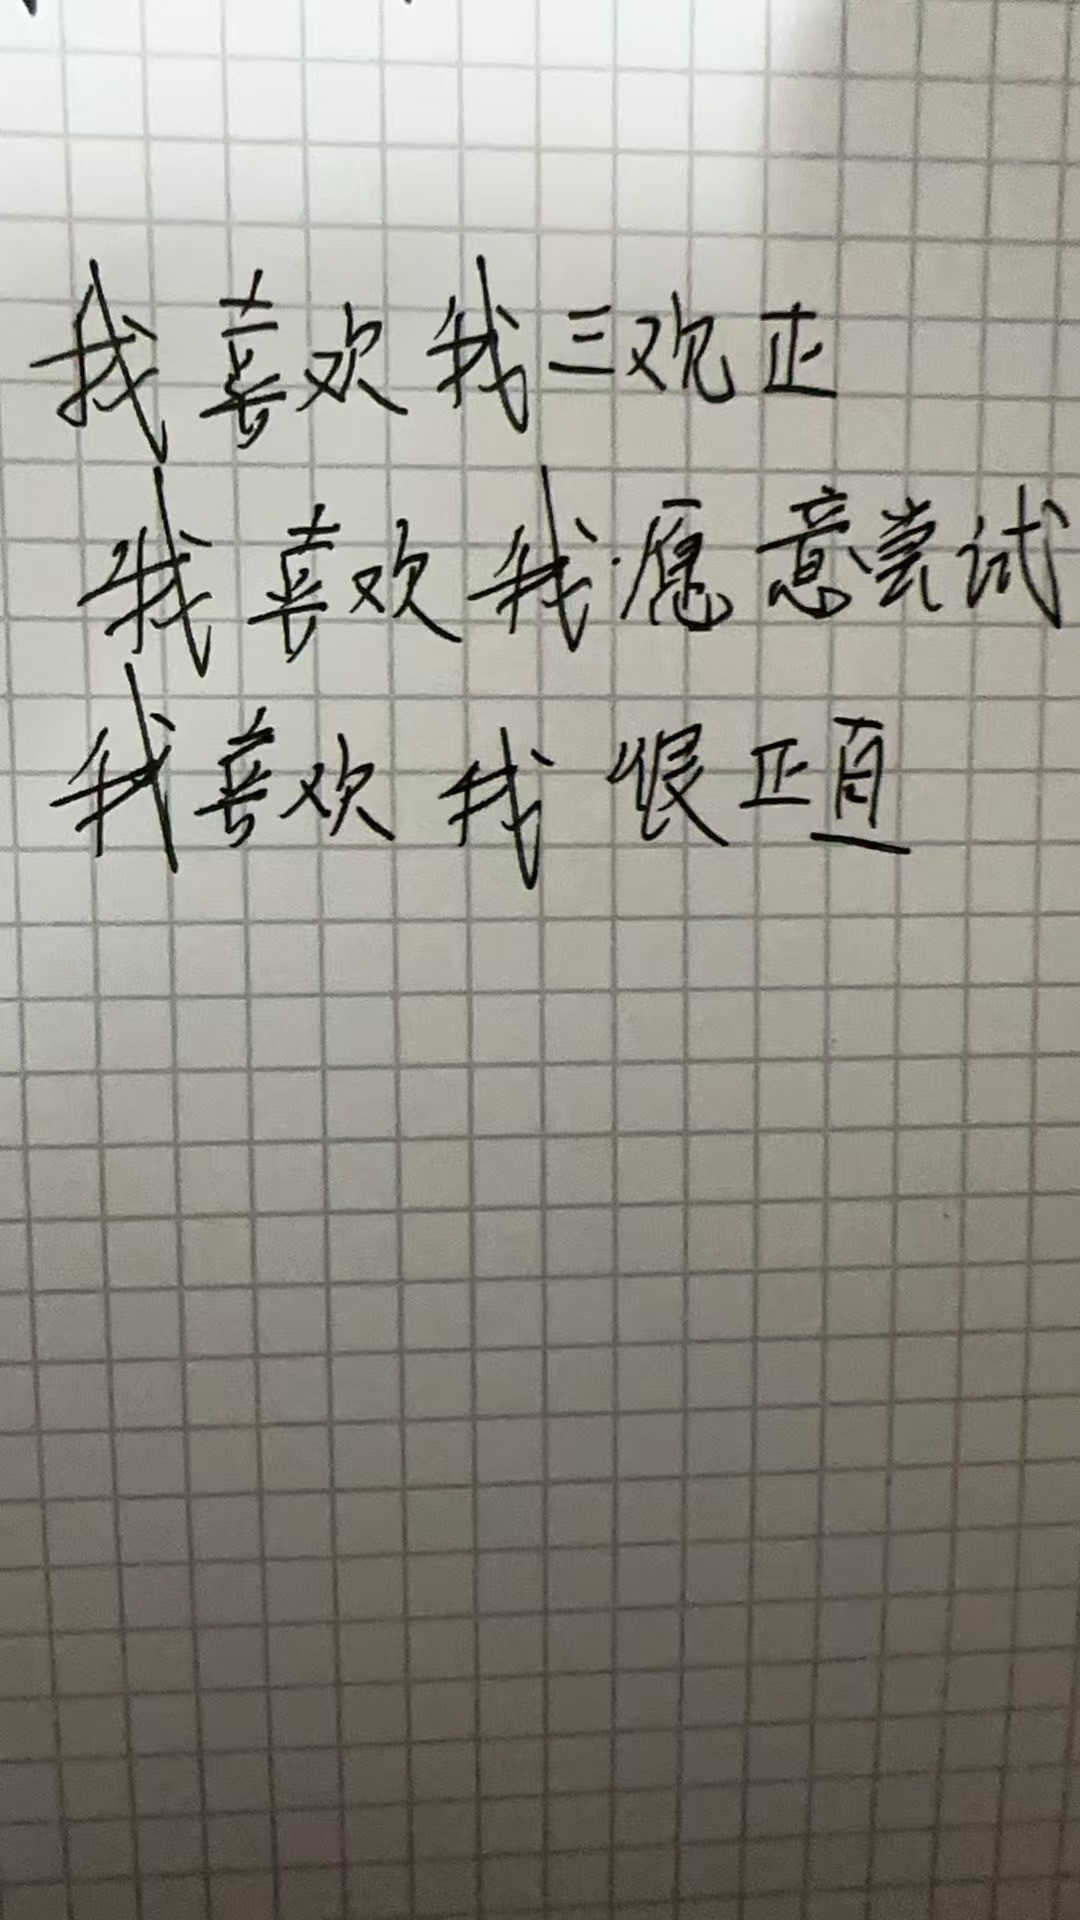 我喜欢我三观正
我喜欢我愿意尝试
我喜欢我很正直